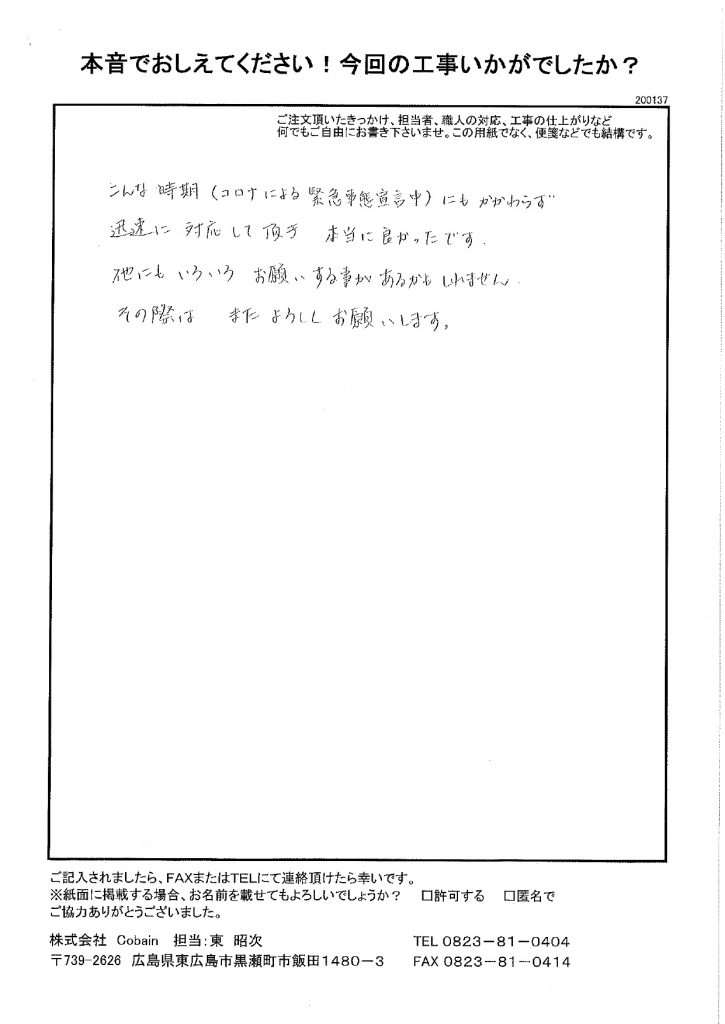 本音でおしえてください！今回の工事いかがでしたか？
200137
ご注文頂いたきっかけ、担当者、職人の対応、工事の仕上がりなど
何でもご自由にお書き下さいませ。この用紙でなく、便箋などでも結構です。
こんな時期(コロナによる緊急事態宣言中)にもかかわらず
迅速に対応して頂き 本当に良かったです.
他にもいろいろお願いする事があるかもしれません.
その際は またよろしくお願いします。
ご記入されましたら、FAXまたはTELにて連絡頂けたら幸いです。
※紙面に掲載する場合、お名前を載せてもよろしいでしょうか？ □許可する □匿名で
ご協力ありがとうございました。
株式会社 Cobain 担当：東 昭次 TEL 0823－81－0404
〒739-2626 広島県東広島市黒瀬町市飯田1480－3 FAX 0823－81－0414